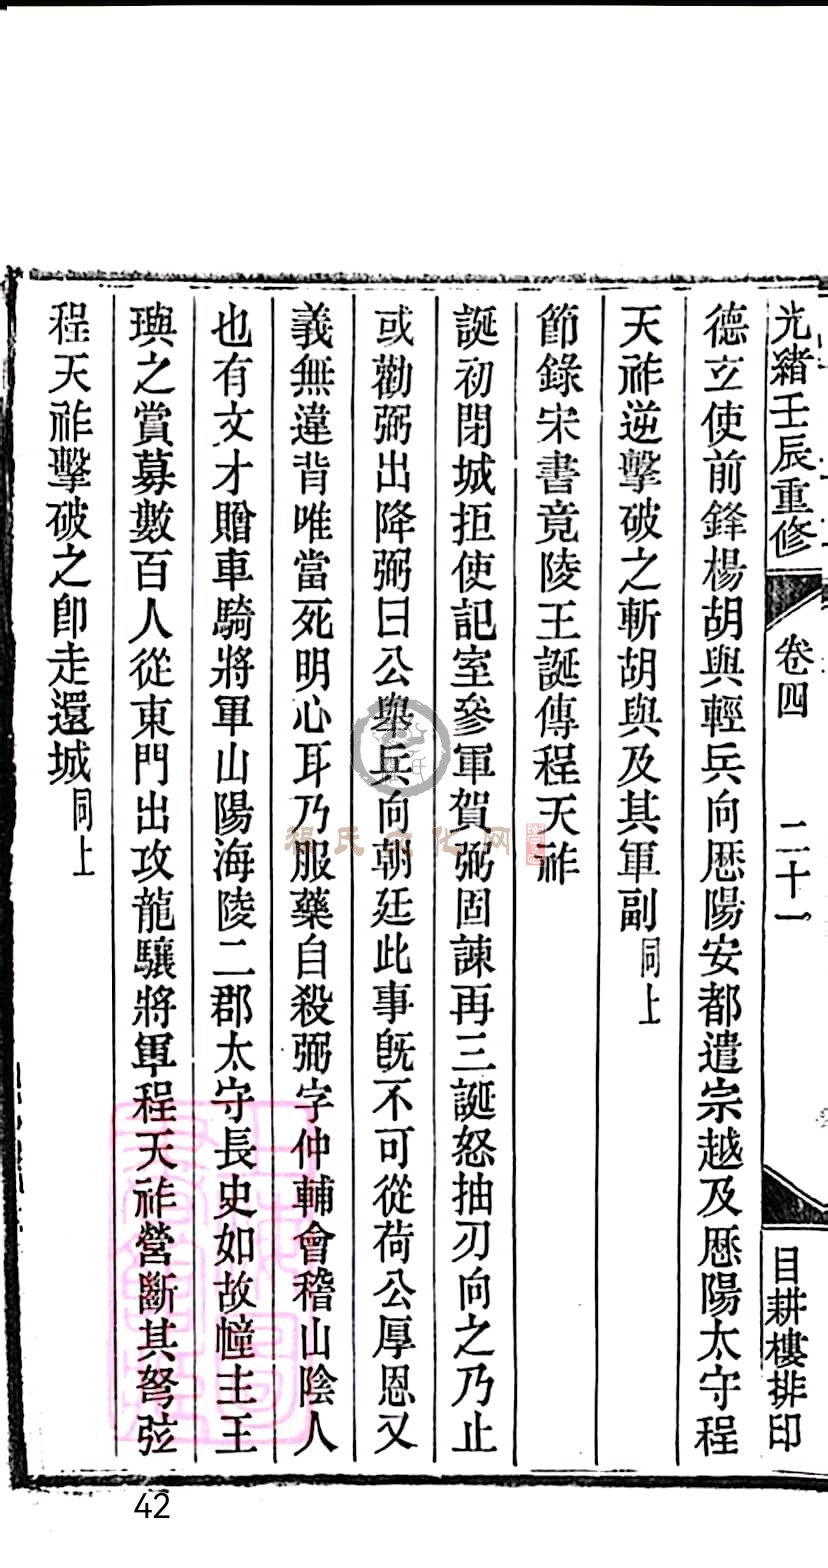 光緒壬辰重修 卷四 二十一 目耕樓排印
德立使前鋒楊胡與輕兵向厯陽安都遣宗越及厯陽太守程
天祚逆擊破之斬胡與及其軍副同上
節錄宋書竟陵王誕傳程天祚
誕初閉城拒使記室參軍賀弼固諫再三誕怒抽刃向之乃止
或勸弼出降弼曰公舉兵向朝廷此事旣不可從荷公厚恩又
義無違背唯當死明心耳乃服藥自殺弼字仲輔會稽山陰人
也有文才贈車騎將軍山陽海陵二郡太守長史如故幢主王
璵之賞募數百人從東門出攻龍驤將軍程天祚營斷其弩弦
程天祚擊破之卽走還城同上
程氏文化网
42